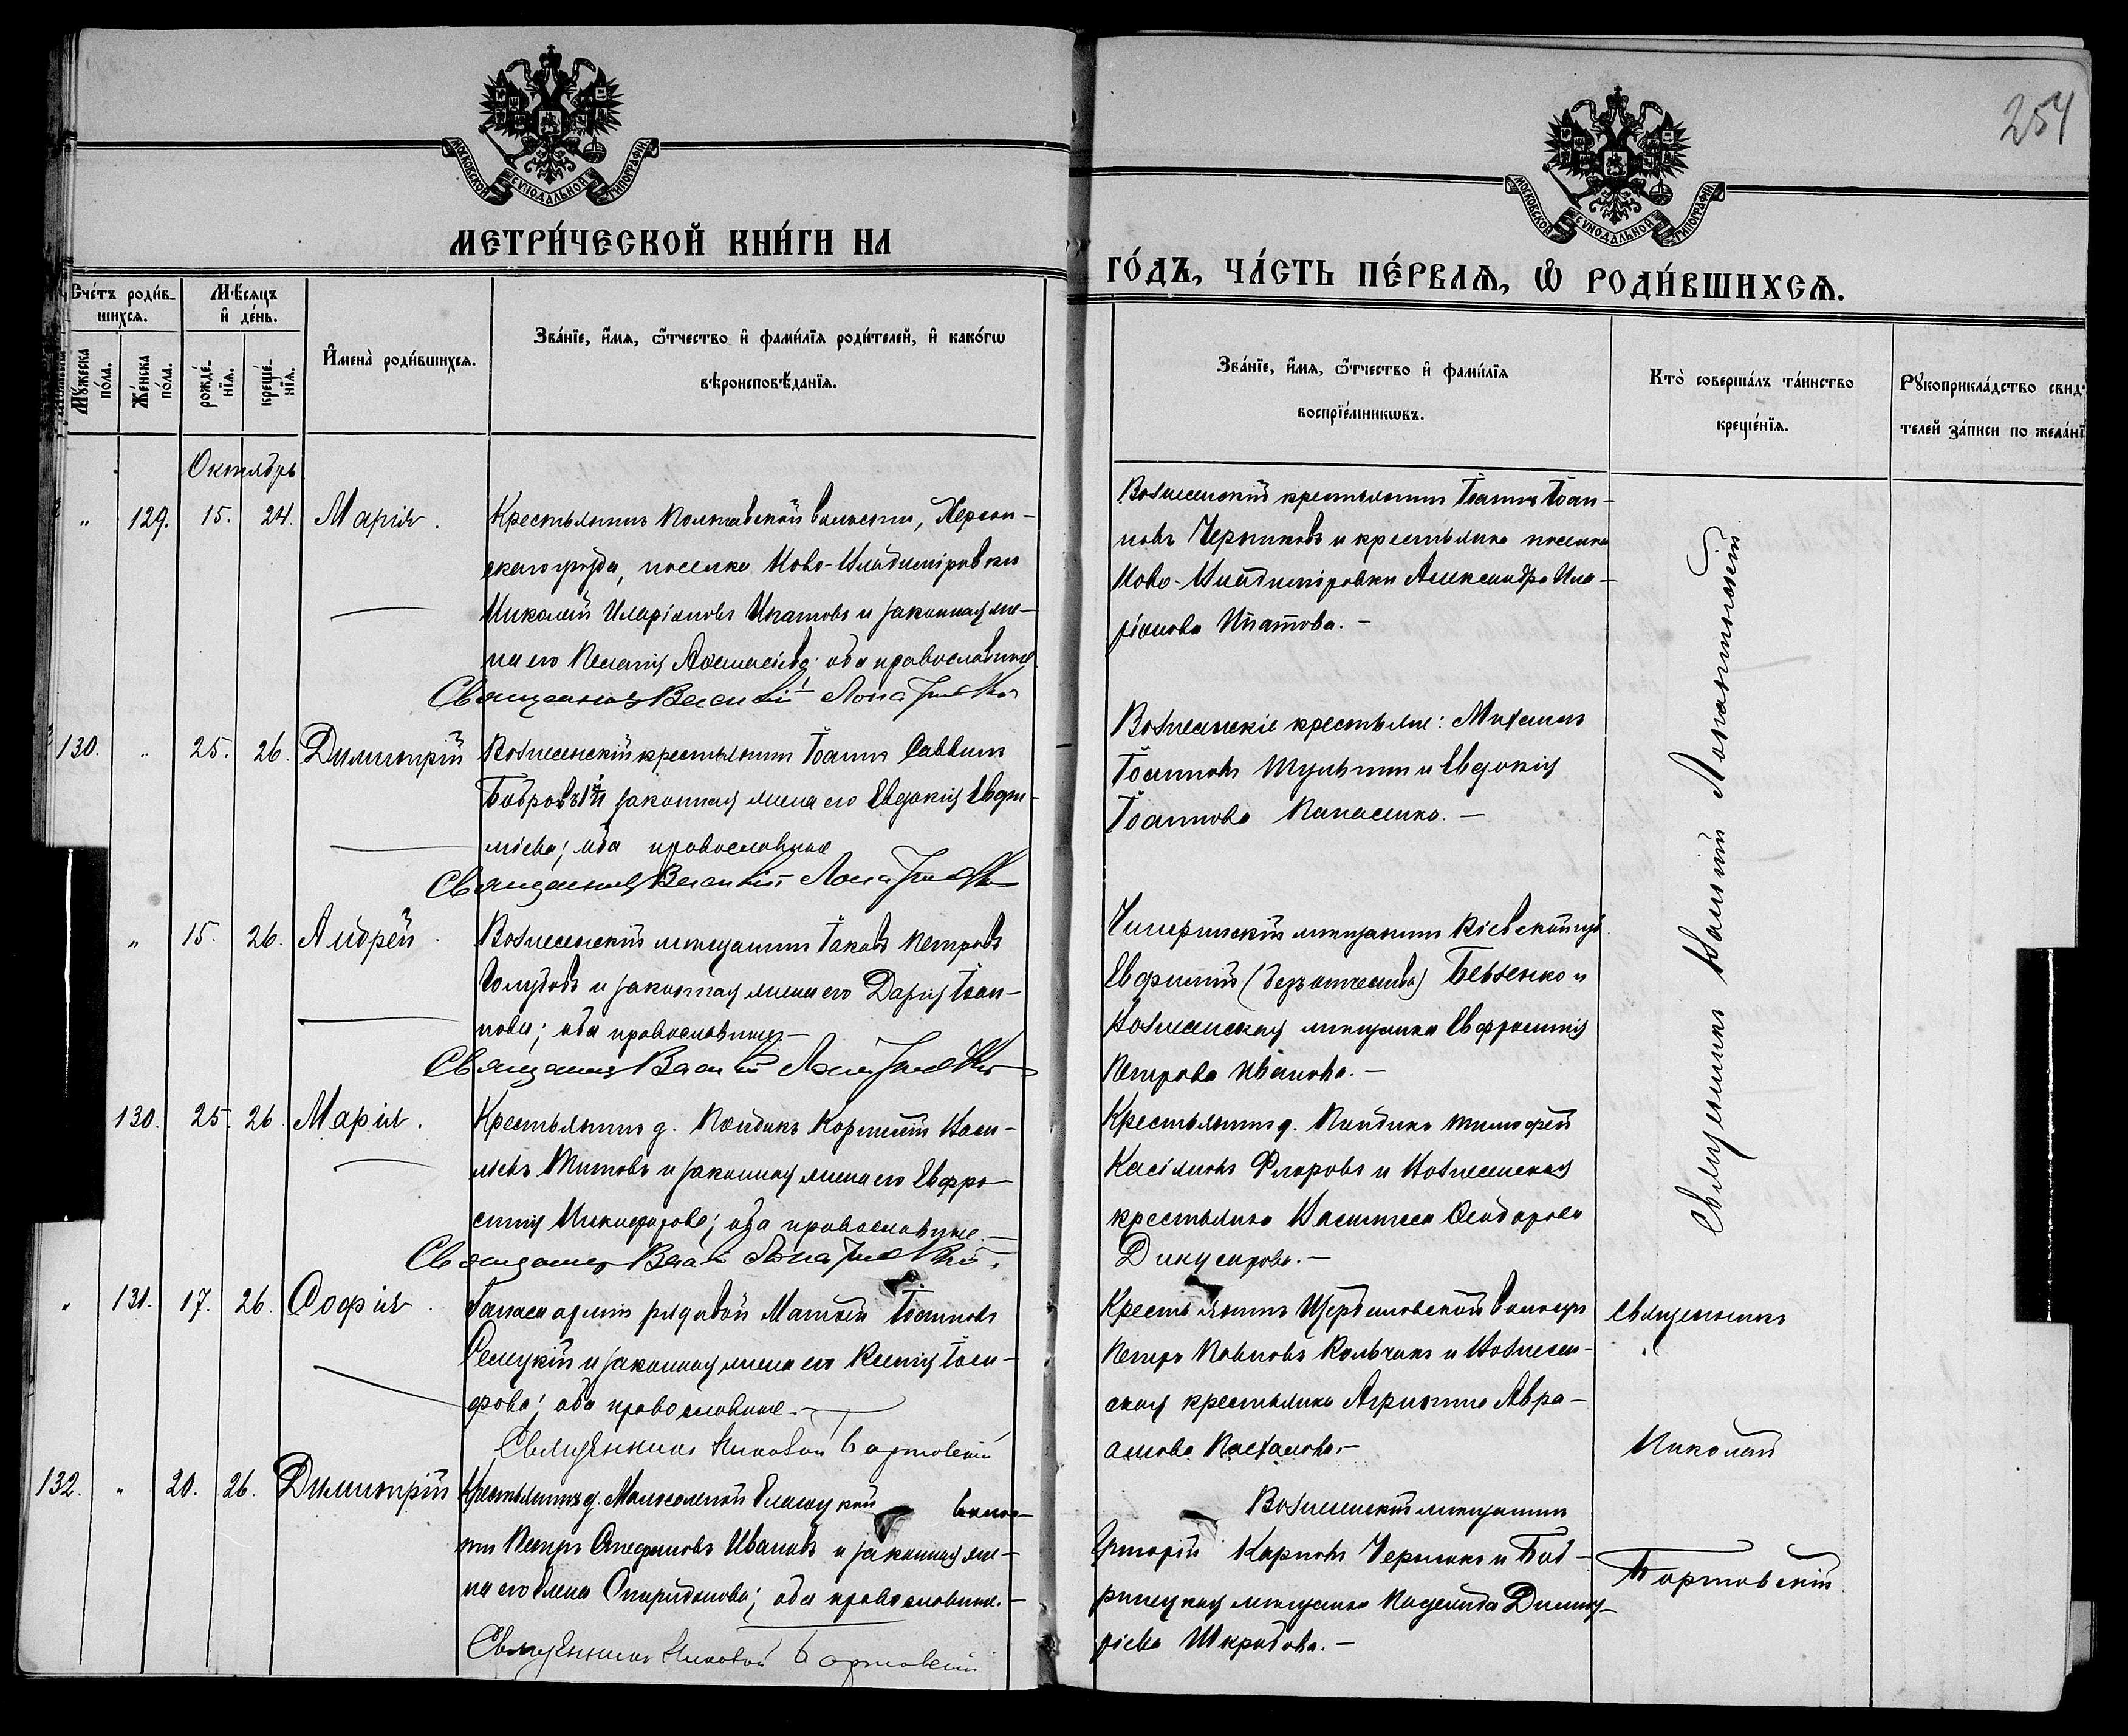 254
МОСКОВСКОЙ СУНОДАЛЬНОЙ ТИПОГРАФІИ
МОСКОВСКОЙ СУНОДАЛЬНОЙ ТИПОГРАФІИ
МЕТРИ́ЧЕСКОЙ КНИ́ГИ НА
ГО́ДЪ, ЧА́СТЬ ПЕ́РВАЯ, Ѡ РОДИ́ВШИХСЯ.
Сче́тъ роди́в-
шихся.
Мѣ́сяцъ
и де́нь.
Му́жеска
по́ла.
Же́нска
по́ла.
рожде́-
нїя.
креще́-
нїя.
Имена̀ роди́вшихся.
Зва́нїе, и́мя, ѻ́тчество и фами́лїя роди́телей, и како́гѡ
вѣроисповѣ́данїя.
Зва́нїе, и́мя, ѻ́тчество и фами́лїя
воспрїе́мникѡвъ.
Кто̀ соверша́лъ та́инство
креще́нїя.
Рꙋкоприкла́дство свидѣ
телей за́писи по жела́нї
Октябрь
" 129. 15. 24. Марія.
Крестьянинъ Полтавской волости, Херсон-
скаго уѣзда, поселка Ново-Владиміровки
Николай Иларіоновъ Ипатовъ и законная же-
на его Пелагія Аѳанасіева; оба православные
Священникъ Василій
Вознесенскій крестьянинъ Іоаннъ Іоан-
новъ Черниковъ и крестьянка поселка
Ново-Владиміровки Александра Ила-
ріонова Ипатова. -
130. " 25. 26. Димитрій
Вознесенскій крестьянинъ Іоаннъ Саввинъ
Бобровъ 1й и законная жена его Евдокія Евфи-
міева; оба православные
Священникъ Василій
Вознесенскіе крестьяне: Михаилъ
Іоанновъ Шульгинъ и Евдокія
Іоаннова Панасенко. -
" 15. 26. Андрей.
Вознесенскій мѣщанинъ Іаковъ Петровъ
Голубовъ и законная жена его Дарія Іоан-
нова; оба православные -
Священникъ Василій
Чигиринскій мѣщанинъ Кіевской губ.
Евфимій (безъ отчества) Бевзенко и
Вознесенская мѣщанка Евфросинія
Петрова Иванова. -
130. 25. 26. Марія.
Крестьянинъ д. Корнилій Васи-
ліевъ Титовъ и законная жена его Евфро-
синія Никифорова; оба православные. -
Священникъ Василій
Крестьянинъ д. Тимофей
Касіановъ Флоровъ и Вознесенская
крестьянка Васса Ѳеодорова
Священникъ Василій
" 131. 17. 26. Софія.
Запасн рядовой Матѳей Іоанновъ
и законная жена его Ксенія Іоси-
фова; оба православные. -
Священникъ Николай Бартовскій
Крестьянинъ Щербановской волости
Петръ Павловъ Кольчакъ и Вознесен-
ская крестьянка Агрипина Авра-
амова -
Священникъ
Николай
Бартовскій
132. " 20. 26. Димитрій
Крестьянинъ д. Малосоленой Еланецкой волос-
ти Петръ Стефановъ Ивановъ и законная же-
на его Елена Спиридонова; оба православные. -
Священникъ Николай Бартовскій
Вознесенскій мѣщанинъ
Григорій Карповъ Чернякъ и Боб-
ринецкая мѣщанка Надежда Димит-
ріева Шкработа. -